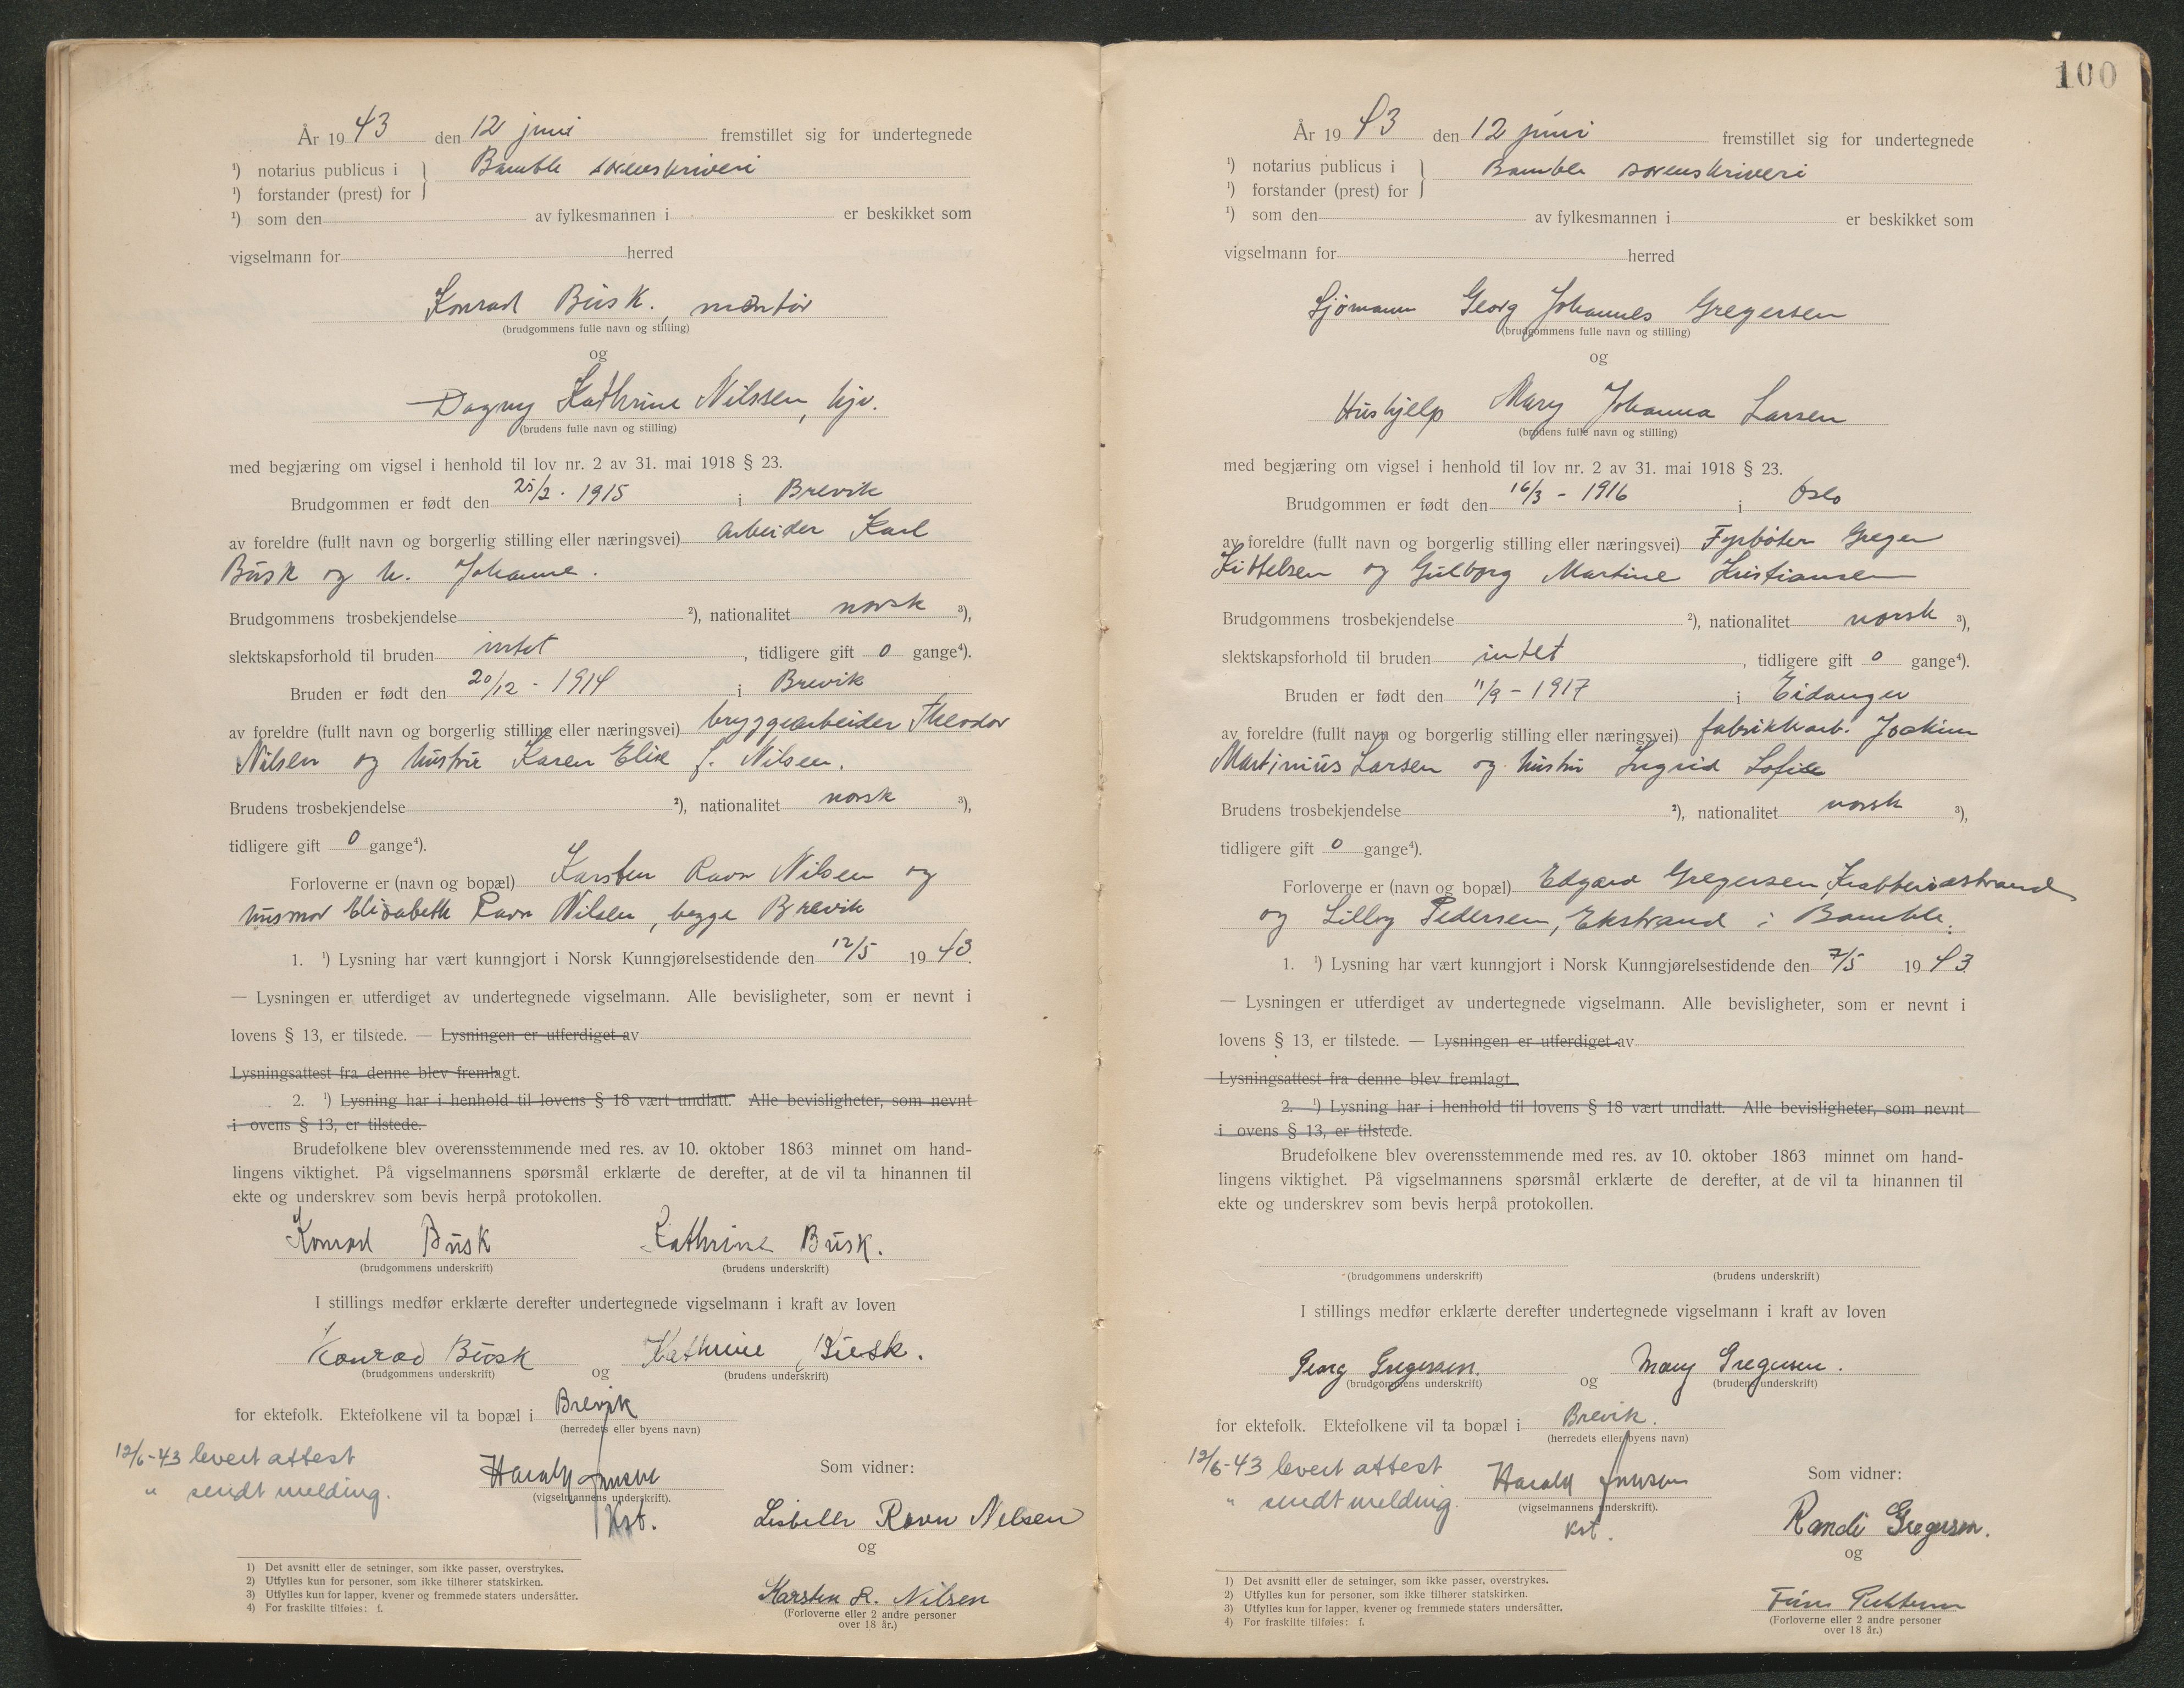 År 19 43 den 12 juni fremstillet sig for undertegnede
¹) notarius publicus i } Bamble sorenskriveri
¹) forstander (prest) for
¹) som den av fylkesmannen i er beskikket som
vigselmann for herred
Konrad Busk., montør
(brudgommens fulle navn og stilling)
og
Dagny Kathrine Nilssen, hjv.
(brudens fulle navn og stilling)
med begjæring om vigsel i henhold til lov nr. 2 av 31. mai 1918 § 23.
Brudgommen er født den 25/2 - 1915 i Brevik
av foreldre (fullt navn og borgerlig stilling eller næringsvei) arbeider Karl
Busk og h. Johanne.
Brudgommens trosbekjendelse ²), nationalitet norsk ³),
slektskapsforhold til bruden intet, tidligere gift 0 gange⁴).
Bruden er født den 20/12 - 1914 i Brevik
av foreldre (fullt navn og borgerlig stilling eller næringsvei) bryggearbeider Theodor
Nilsen og hustru Karen Elise f. Nilsen.
Brudens trosbekjendelse ²), nationalitet norsk ³),
tidligere gift 0 gange⁴).
Forloverne er (navn og bopæl) Karsten Ravn Nilsen og
husmor Elisabeth Ravn Nilsen, begge Brevik
1. ¹) Lysning har vært kunngjort i Norsk Kunngjørelsestidende den 12/5 19 43.
— Lysningen er utferdiget av undertegnede vigselmann. Alle bevisligheter, som er nevnt i
lovens § 13, er tilstede. — Lysningen er utferdiget av
Lysningsattest fra denne blev fremlagt.
2. ¹) Lysning har i henhold til lovens § 18 vært undlatt. Alle bevisligheter, som nevnt
i ovens § 13, er tilstede.
Brudefolkene blev overensstemmende med res. av 10. oktober 1863 minnet om hand-
lingens viktighet. På vigselmannens spørsmål erklærte de derefter, at de vil ta hinannen til
ekte og underskrev som bevis herpå protokollen.
Konrad Busk Kathrine Busk.
(brudgommens underskrift) (brudens underskrift)
I stillings medfør erklærte derefter undertegnede vigselmann i kraft av loven
Konrad Busk og Kathrine Busk.
(brudgommens underskrift) (brudens underskrift)
for ektefolk. Ektefolkene vil ta bopæl i Brevik
(herredets eller byens navn)
12/6-43 levert attest
" sendt melding.
Harald
(vigselmannens underskrift).
Kst.
Som vidner:
Lisbeth Ravn Nilsen
og
Karsten R. Nilsen
(Forloverne eller 2 andre personer
over 18 år.)
1) Det avsnitt eller de setninger, som ikke passer, overstrykes.
2) Utfylles kun for personer, som ikke tilhører statskirken.
3) Utfylles kun for lapper, kvener og fremmede staters undersåtter.
4) For fraskilte tilføies: f.
100
År 19 43 den 12 juni fremstillet sig for undertegnede
¹) notarius publicus i } Bamble sorenskriveri
¹) forstander (prest) for
¹) som den av fylkesmannen i er beskikket som
vigselmann for herred
Sjømann Georg Johannes Gregersen
(brudgommens fulle navn og stilling)
og
Hushjelp Mary Johanna Larsen
(brudens fulle navn og stilling)
med begjæring om vigsel i henhold til lov nr. 2 av 31. mai 1918 § 23.
Brudgommen er født den 16/3 - 1916 i Oslo
av foreldre (fullt navn og borgerlig stilling eller næringsvei) Fyrbøter Greger
Kittelsen og Gulborg Martine Kristiansen
Brudgommens trosbekjendelse ²), nationalitet norsk ³),
slektskapsforhold til bruden intet, tidligere gift 0 gange⁴).
Bruden er født den 11/9 - 1917 i Eidanger
av foreldre (fullt navn og borgerlig stilling eller næringsvei) fabrikkarb. Jockim
Martinius Larsen og hustru Ingrid Sofie
Brudens trosbekjendelse ²), nationalitet norsk ³),
tidligere gift 0 gange⁴).
Forloverne er (navn og bopæl) Edgard Gregersen, Krabberødstrand
og Lilly Pedersen, Ekstrand i Bamble.
1. ¹) Lysning har vært kunngjort i Norsk Kunngjørelsestidende den 7/5 19 43
— Lysningen er utferdiget av undertegnede vigselmann. Alle bevisligheter, som er nevnt i
lovens § 13, er tilstede. — Lysningen er utferdiget av
Lysningsattest fra denne blev fremlagt.
2. ¹) Lysning har i henhold til lovens § 18 vært undlatt. Alle bevisligheter, som nevnt
i ovens § 13, er tilstede.
Brudefolkene blev overensstemmende med res. av 10. oktober 1863 minnet om hand-
lingens viktighet. På vigselmannens spørsmål erklærte de derefter, at de vil ta hinannen til
ekte og underskrev som bevis herpå protokollen.
(brudgommens underskrift) (brudens underskrift)
I stillings medfør erklærte derefter undertegnede vigselmann i kraft av loven
Georg Gregersen. og Mary Gregersen.
(brudgommens underskrift) (brudens underskrift)
for ektefolk. Ektefolkene vil ta bopæl i Brevik.
(herredets eller byens navn)
12/6-43 levert attest
" sendt melding.
Harald
(vigselmannens underskrift).
kst.
Som vidner:
Randi Gregersen.
og
(Forloverne eller 2 andre personer
over 18 år.)
1) Det avsnitt eller de setninger, som ikke passer, overstrykes.
2) Utfylles kun for personer, som ikke tilhører statskirken.
3) Utfylles kun for lapper, kvener og fremmede staters undersåtter.
4) For fraskilte tilføies: f.